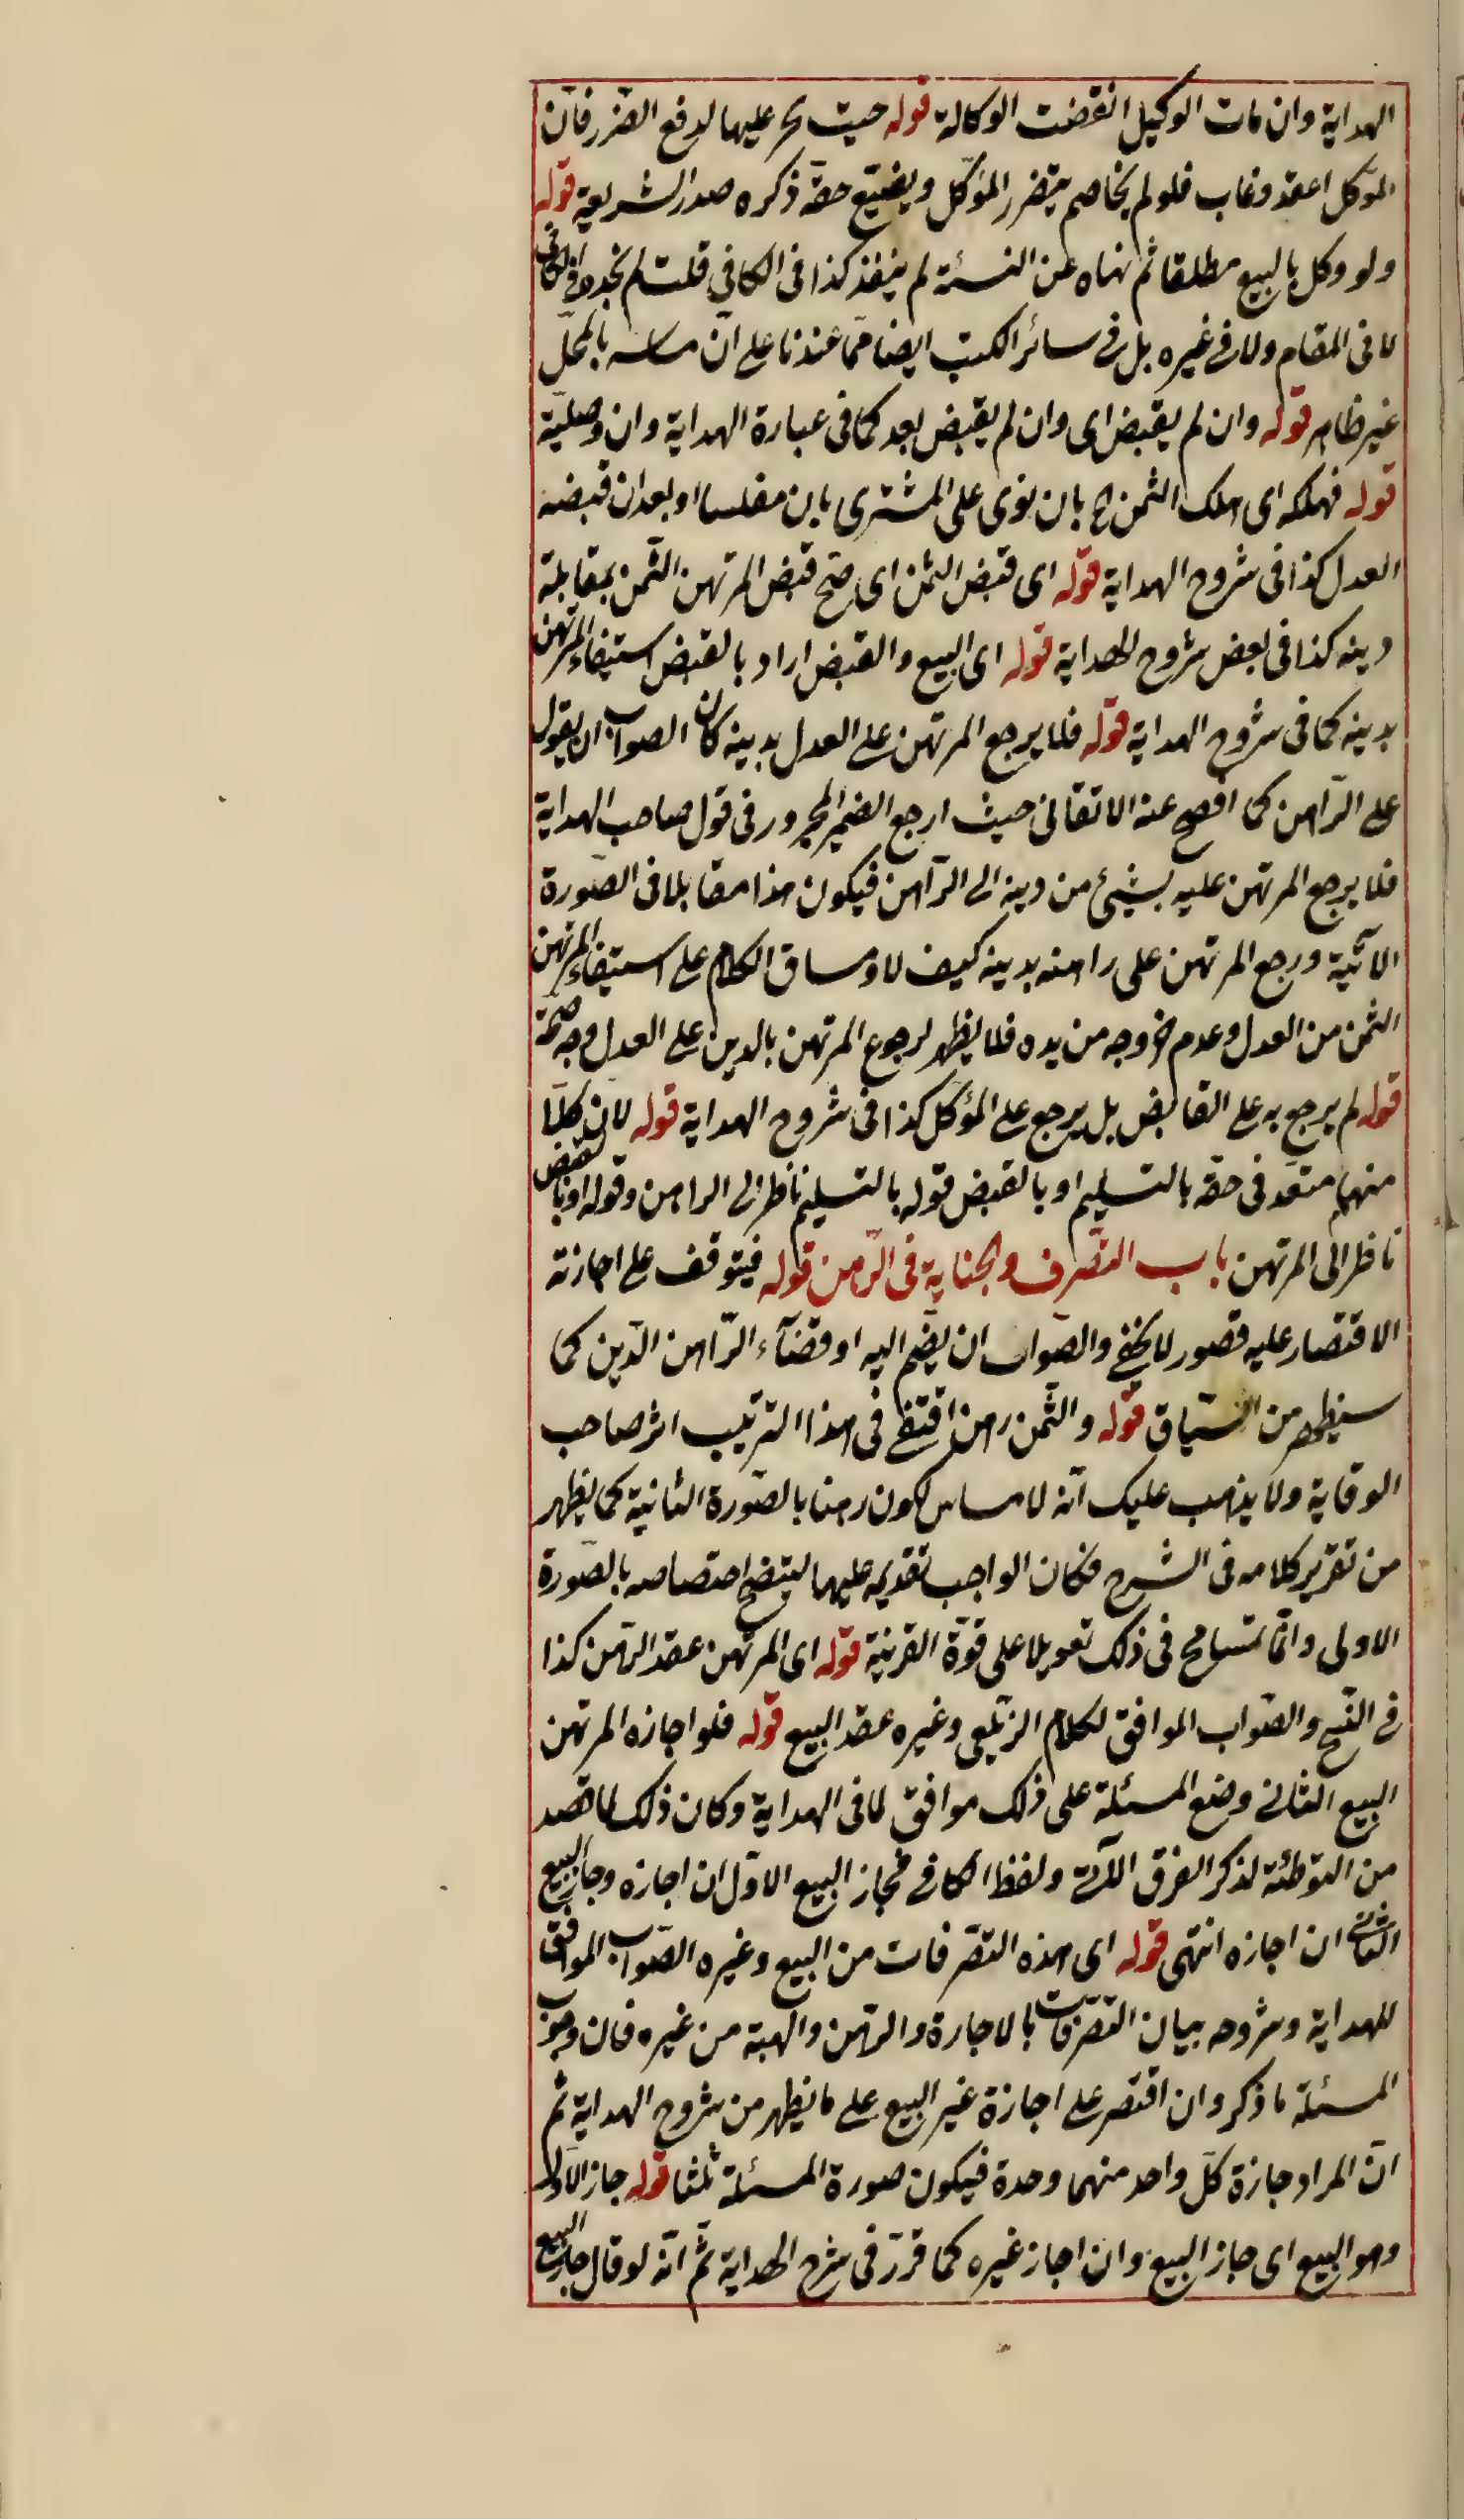 الهداية وان مات الوكيل انتقضت الوكالة قوله حيث يجبر عليها لدفع الضرر فان
الموّكل اعتمد وغاب فلو لم يخاصم يتضرر الموّكل ويضيّع حقّه ذكره صدر الشريعة قوله
ولو وكل بالبيع مطلقا ثم نهاه عن النسئة لم ينفذ كذا فى الكافي قلت لم نجده فى الكافى
لا فى المقام ولا فى غيره بل فى سائر الكتب ايضا ممّا عندنا على انّ مساسه بالمحلّ
غير ظاهر قوله وان لم يقبض اى وان لم يقبض بعد كما فى عبارة الهداية وان وصليّة
قوله فهلكه اى هلك الثمن بان توى على المشترى بان مفلسا او بعد ان قبضه
العدل كذا فى شروح الهداية قوله اى قبض الثمن اى صحّ قبض المرتهن الثّمن بمقابلة
دينه كذا فى بعض شروح الهداية قوله اى البيع والقبض اراد بالقبض استيفاء المرتهن
بدينه كما فى شروح الهداية قوله فلا يرجع المرتهن على العدل بدينه كان الصواب ان يقول
على الرّاهن كما افصح عنه الاتقانى حيث ارجع الضمير المجرور فى قول صاحب الهداية
فلا يرجع المرتهن عليه بشيئ من دينه الى الرّاهن فيكون هذا مقابلا فى الصّورة
الآتية ورجع المرتهن على راهنه بدينه كيف لا ومساق الكلام على استيفاء المرتهن
الثمن من العدل وعدم خروجه من يده فلا يظهر لرجوع المرتهن بالدين على العدل وجه صحّة
قوله لم يرجع به على القابض بل يرجع على المؤكل كذا فى شروح الهداية قوله لانّ كلّا
منهما متعدّ فى حقّه بالتسليم او بالقبض قوله بالتسليم ناظر الى الراهن وقوله او بالقبض
ناظر الى المرتهن باب التصّرف والجناية فى الرّهن قوله فيتوقف على اجازته
الاقتصار عليه قصور لا يخفى والصّواب ان يضّم اليه او قضآء الرّاهن الدّين كما
سيظهر من السّياق قوله والثّمن رهن اقتفى فى هذا الترتيب اثر صاحب
الوقاية ولا يذهب عليك انّه لا مساس لكون رهنا بالصّورة الثانية كما يظهر
من تقرير كلامه فى الشرح فكان الواجب تقديمه عليها ليتضح اختصاصه بالصّورة
الاولى وانّما تسامح فى ذلك تعويلا على قوّة القرينة قوله اى المرتهن عقد الرّهن كذا
فى النّسخ والصّواب الموافق لكلام الزّيلعى وغيره عقد البيع قوله فلو اجازه المرتهن
البيع الثانى وضع المسئلة على ذلك موافق لما فى الهداية وكان ذلك لما قصد
من التوطئة لذكر الفرق الآتى ولفظ الكافى فجاز البيع الاوّل ان اجازه وجاز البيع
الثانى ان اجازه انتهى قوله اى هذه التصّرفات من البيع وغيره الصّواب الموافق
للهداية وشروحه بيان التصّرفات بالاجارة والرّهن والهبة من غيره فان وضع
المسئلة ما ذكر وان اقتصر على اجازة غير البيع على ما يظهر من شروح الهداية ثم
انّ المراد جازة كلّ واحد منهما وحدة فيكون صورة المسئلة ثلثا قوله جاز الاوّل
وهو البيع اى جاز البيع وان اجاز غيره كما قرّر فى شرح الهداية ثمّ انّه لو قال جاز البيع